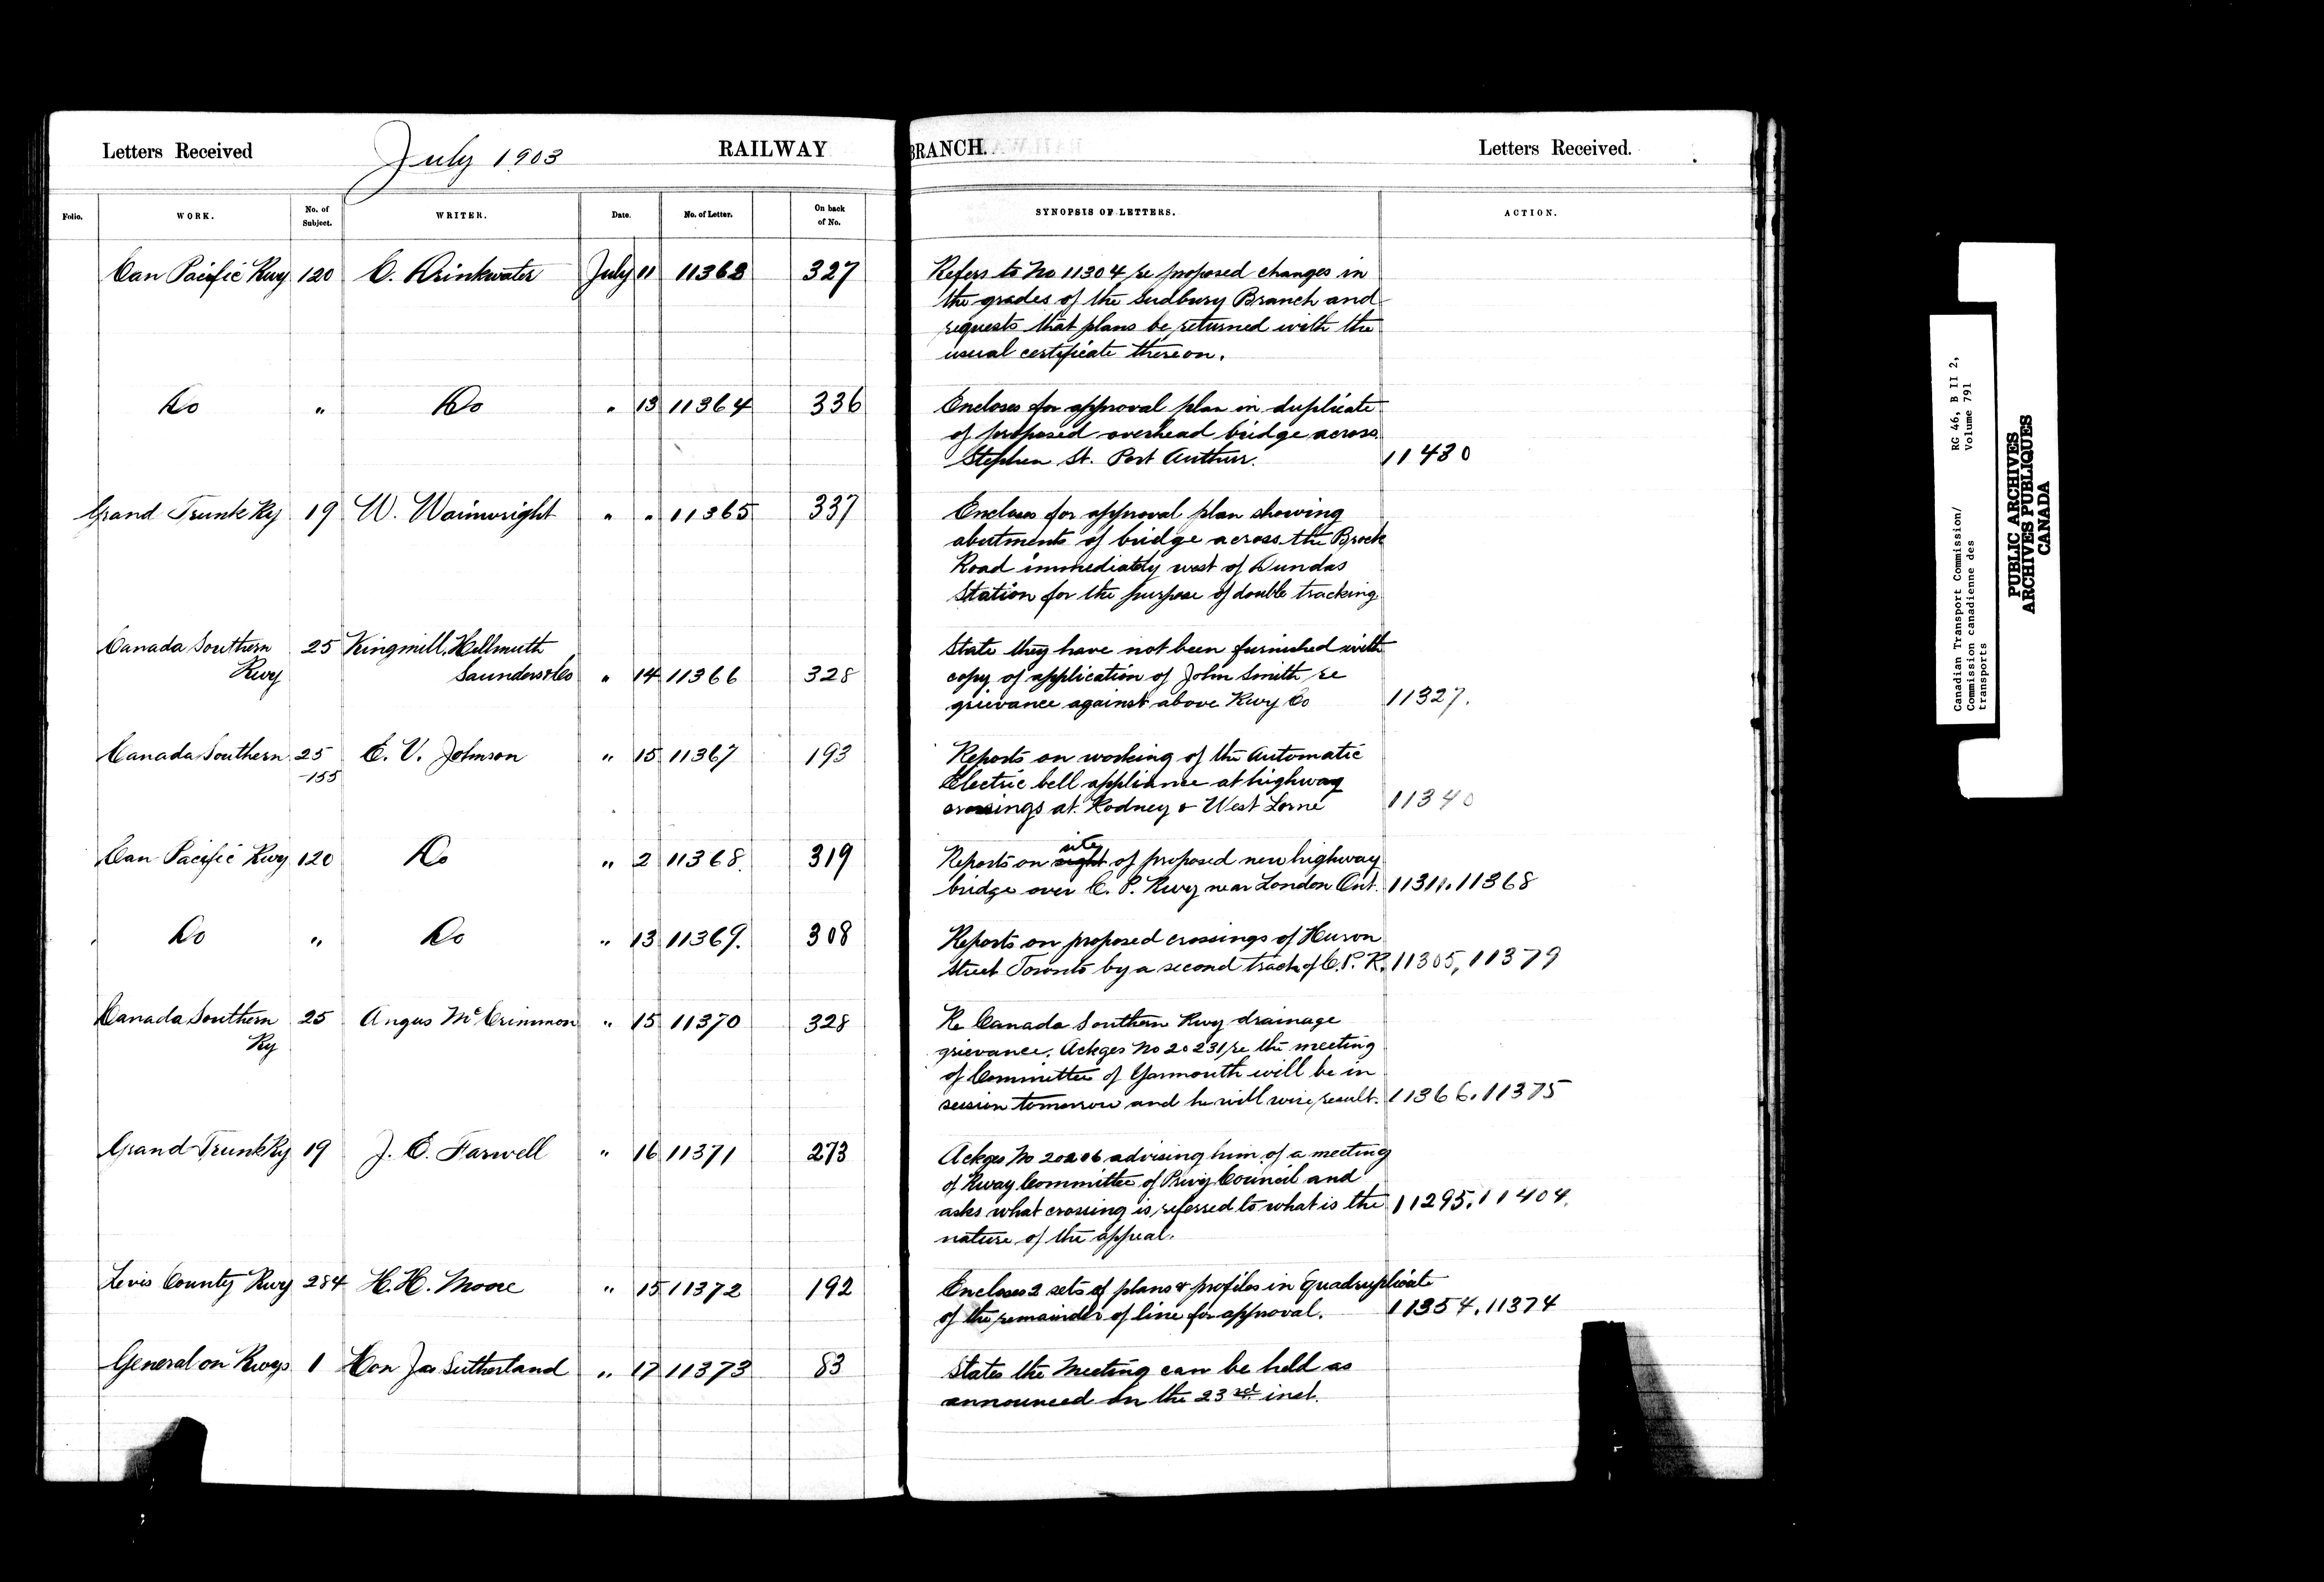 Letters Received July 1903 RAILWAY BRANCH. Letters Received.
Folio. WORK. No. of Subject. WRITER. Date. No. of Letter. On back of No. SYNOPSIS OF LETTERS. ACTION.
Can Pacific Rwy 120 C. Drinkwater July 11 11363 327 Refers to No 11304 re proposed changes in
the grades of the Sudbury Branch and
requests that plans be returned with the
usual certificate thereon.
Do " Do " 13 11364 336 Encloses for approval plan in duplicate
of proposed overhead bridge across
Stephen St. Port Authur. 11430
Grand Trunk Ry 19 W. Wainwright " " 11365 337 Encloses for approval plan showing
abutments of bridge across the Brock
Road immediately west of Dundas
Station for the purpose of double tracking
Canada Southern 25 Kingmill, Hellmuth State they have not been furnished with
Rwy Saunders & Co " 14 11366 328 copy of application of John Smith re
grievance against above Rwy Co 11327.
Canada Southern 25 E. V. Johnson " 15 11367 193 Reports on working of the Automatic
-155 Electric bell appliance at highway
crossings at Rodney & West Lorne 11340
site
Can Pacific Rwy 120 Do " 2 11368. 319 Reports on sight of proposed new highway
bridge over C. P. Rwy near London Ont. 11311. 11368
Do " Do " 13 11369. 308 Reports on proposed crossings of Huron
Street Toronto by a second track of C.P.R. 11305, 11379
Canada Southern 25 Angus McCrimmon " 15 11370 328 Re Canada Southern Rwy drainage
Ry grievance. Ackges No 20231 re the meeting
of Committee of Yarmouth will be in
session tomorrow and he will wire result. 11366. 11375
Grand Trunk Ry 19 J. E. Farwell " 16 11371 273 Ackges No 20206 advising him of a meeting
of Rway Committee of Privy Council and
asks what crossing is referred to what is the 11295. 11404.
nature of the appeal.
Levis County Rwy 284 H. H. Moore " 15 11372 192 Encloses 2 sets of plans & profiles in Quadruplicate
of the remainder of line for approval. 11354. 11374
General on Rwys 1 Hon Jas Sutherland " 17 11373 83 States the Meeting can be held as
announced on the 23rd inst.
Canadian Transport Commission/ RG 46, B II 2,
Commission canadienne des Volume 791
transports
PUBLIC ARCHIVES
ARCHIVES PUBLIQUES
CANADA